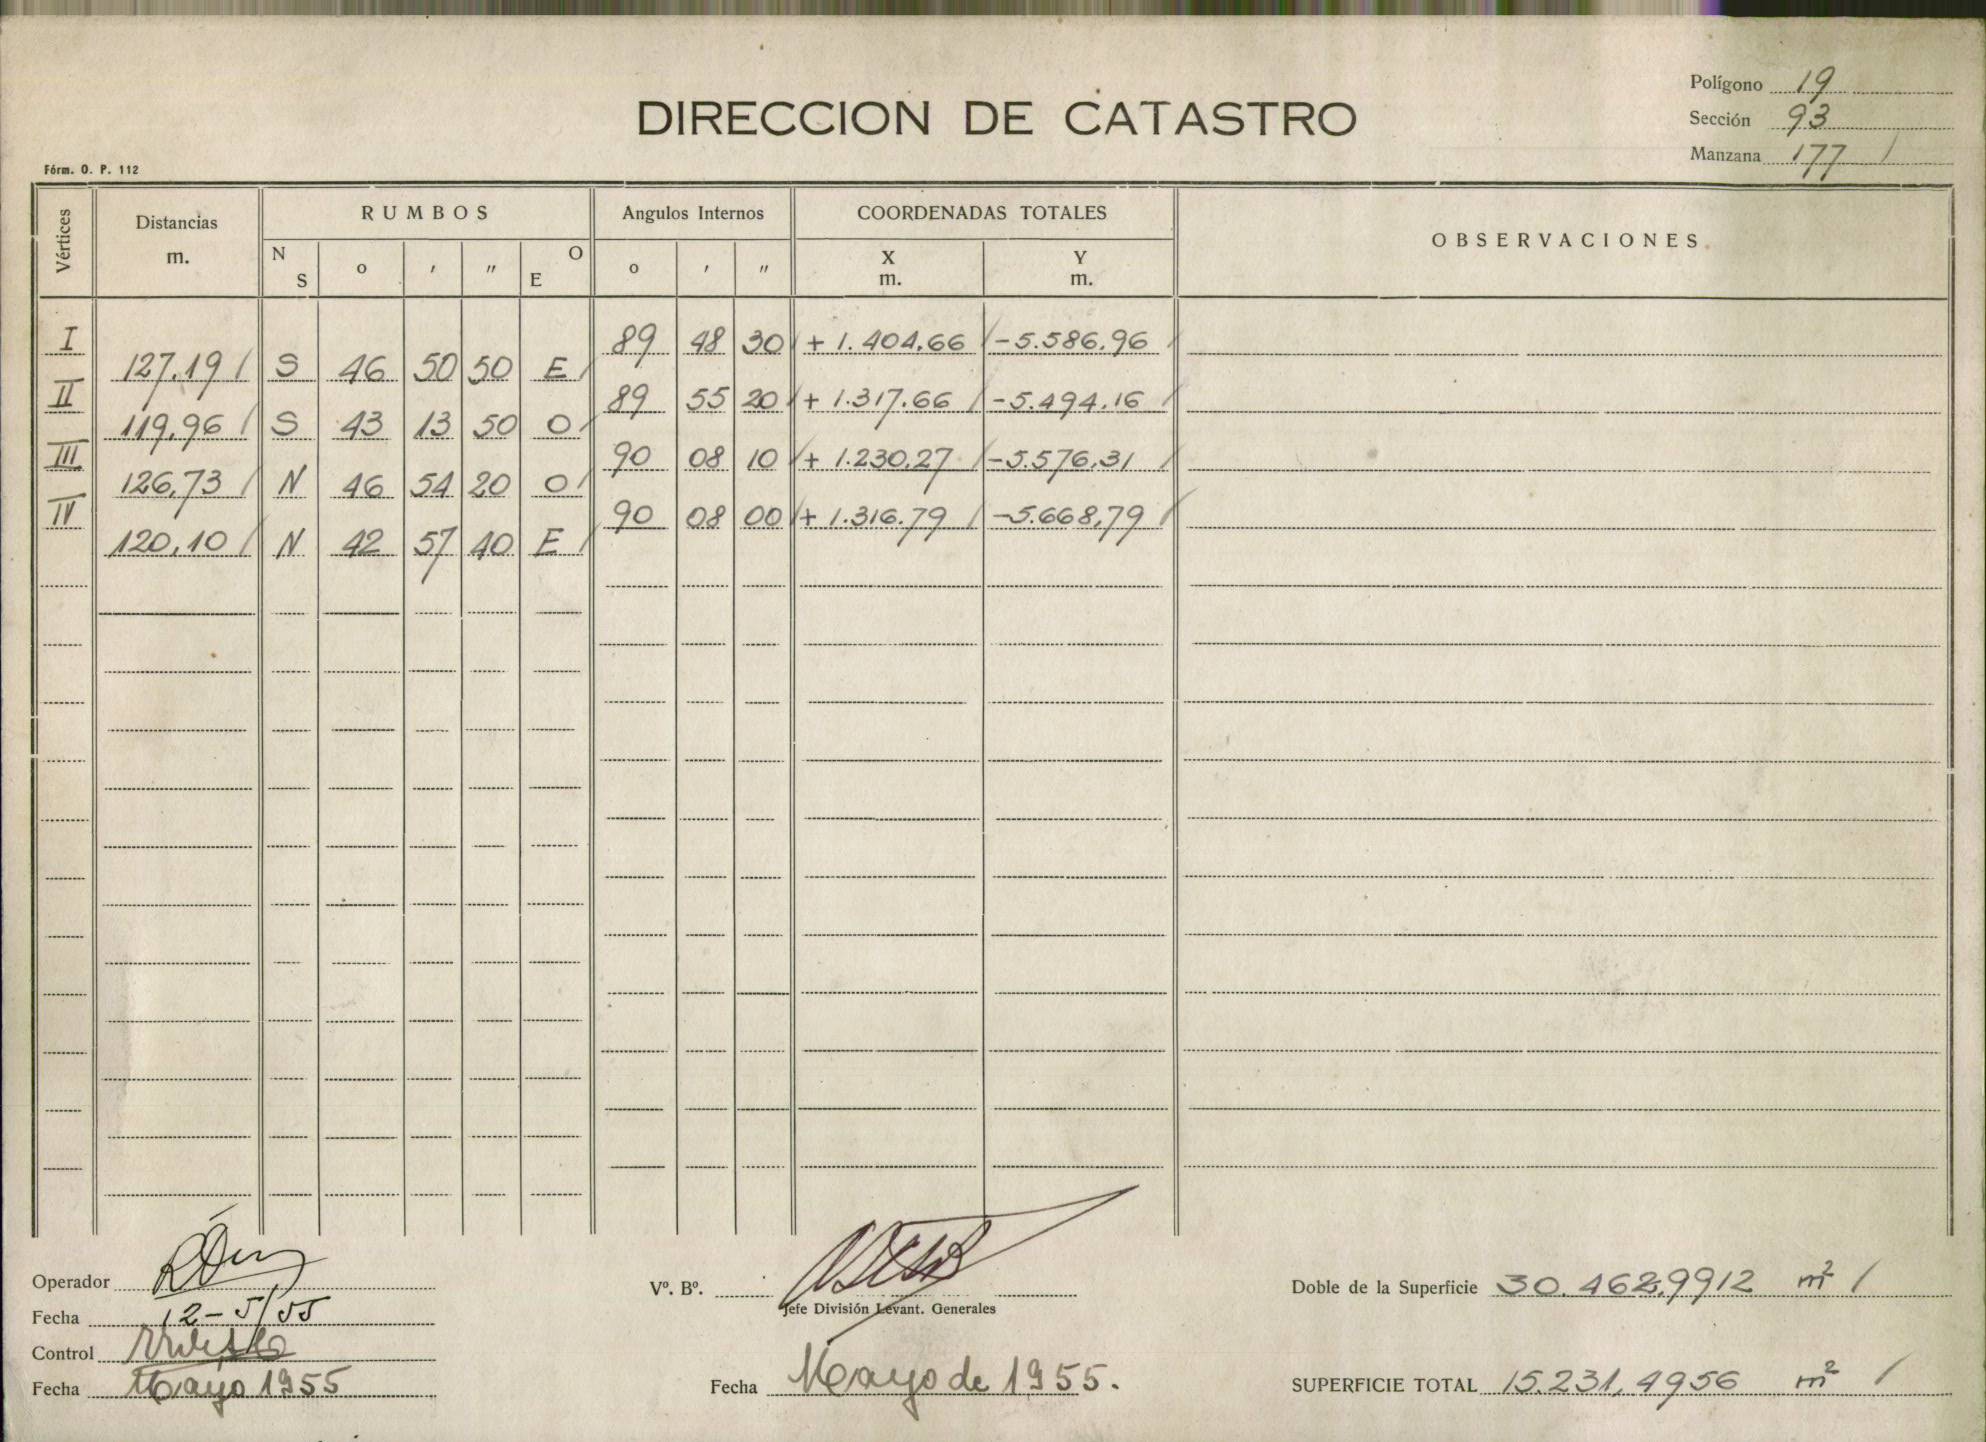 Polígono 19
DIRECCION DE CATASTRO
Sección 93
Manzana 177 /
Fórm. O. P. 112
Vértices Distancias m. RUMBOS Angulos Internos COORDENADAS TOTALES OBSERVACIONES
N S o ' " O E o ' " X m. Y m.
I 89 48 30 + 1.404.66 / -5.586.96 /
127.19 / S 46 50 50 E /
II 89 55 20 / + 1.317.66 / -5.494.16 /
119.96 / S 43 13 50 O /
III 90 08 10 / + 1.230.27 / -5.576.31 /
126.73 / N 46 54 20 O /
IV 90 08 00 / + 1.316.79 / -5.668.79 /
120.10 / N 42 57 40 E /
Operador
Vº. Bº.
Doble de la Superficie 30.462.9912 m² /
Jefe División Levant. Generales
Fecha 12-5/55
Control
Fecha Mayo 1955
Fecha Mayo de 1955.
SUPERFICIE TOTAL 15.231.4956 m² /